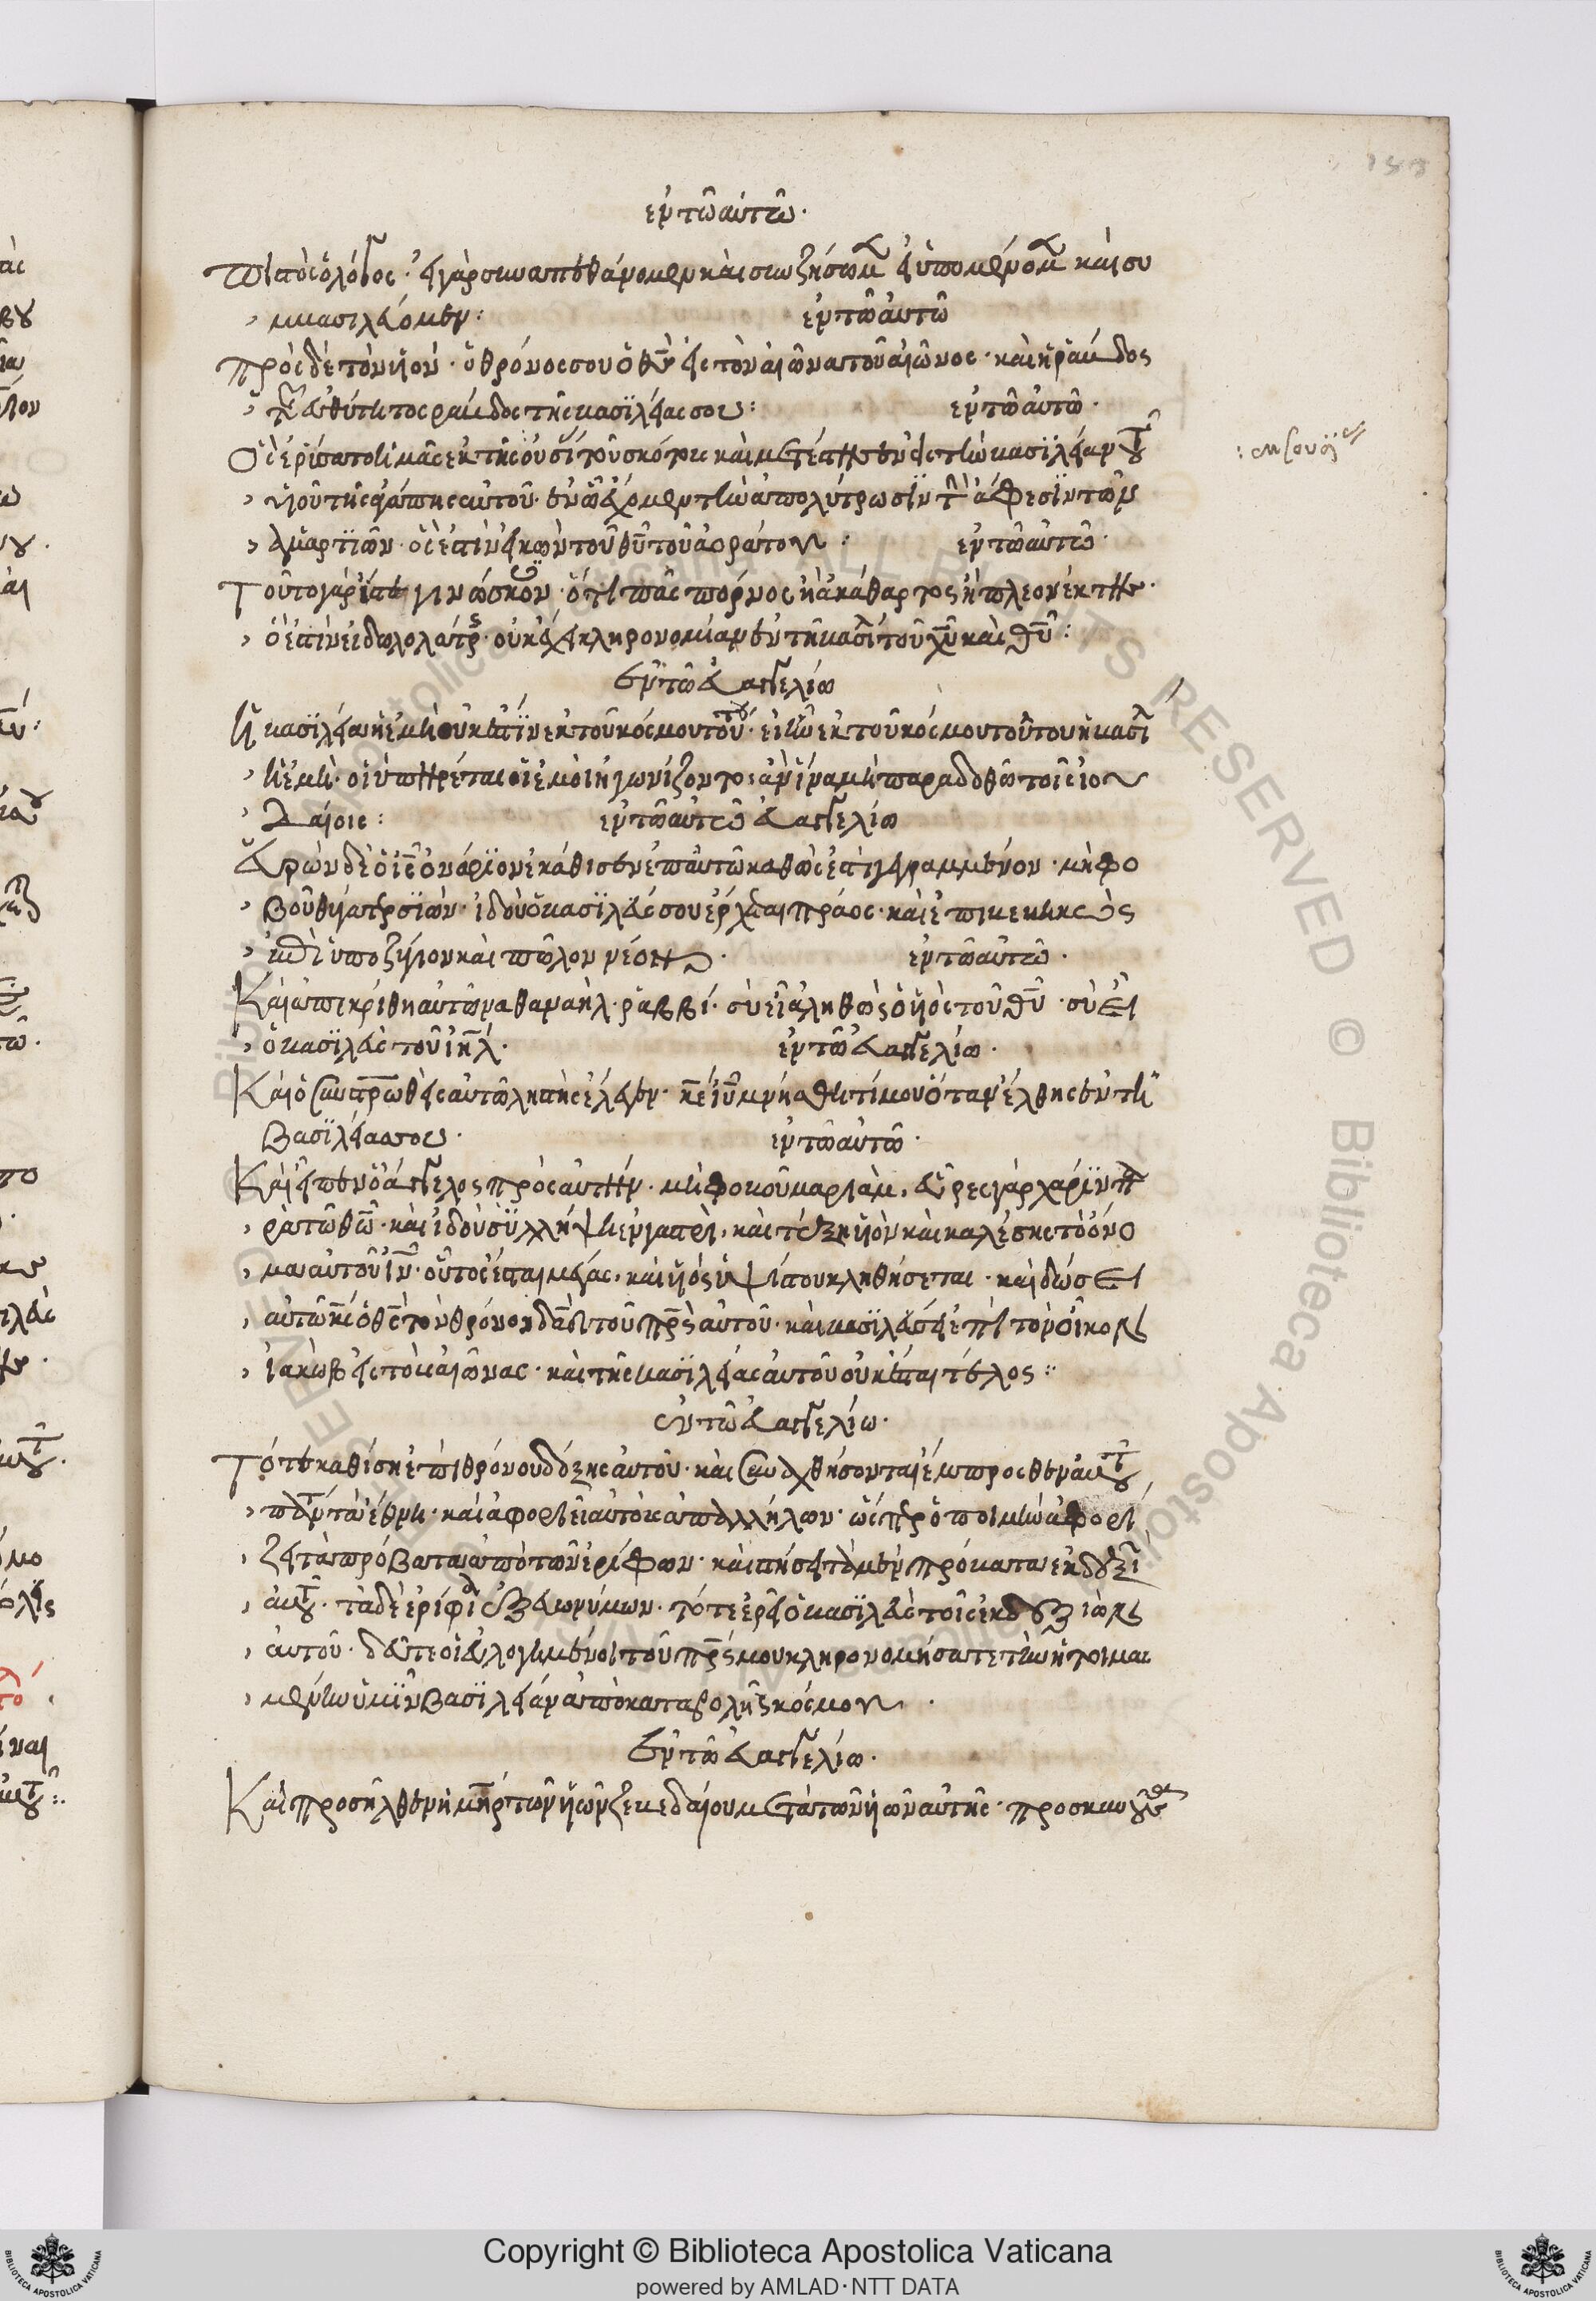 ἐν τῶ αὐτῶ·
Πιστὸς ὁ λόγος· εἰ γὰρ συναπεθάνομεν καὶ συζήσομεν εἰ ὑπομένομεν καὶ συ
μβασιλεύσομεν:
ἐν τῶ αὐτῶ
πρὸς δὲ τὸν υἱὸν· ὁ θρόνος σου ὁ θς εἰς τὸν αἰῶνα τοῦ αἰῶνος· καὶ ἡ ῥάβδος
εὐθύτητος ῥάβδος τῆς βασιλείας σου:
ἐν τῶ αὐτῶ·
Ὃς ἐρύσατο ἡμᾶς ἐκ τῆς ἐξουσίας τοῦ σκότους καὶ μετέστησεν εἰς τὴν βασιλείαν τοῦ
υἱοῦ τῆς ἀγάπης αὐτοῦ· ἐν ὧ ἔχομεν τὴν ἀπολύτρωσιν τὴν ἄφεσιν τῶν
ἁμαρτιῶν· ὅς ἐστιν εἰκὼν τοῦ θυ τοῦ ἀοράτου:
ἐν τῶ αὐτῶ·
Τοῦτο γὰρ ἴστε γινώσκοντες· ὅτι πᾶς πόρνος ἢ ἀκάθαρτος ἢ πλεονέκτης·
ὅ ἐστιν εἰδωλολάτρης· οὐκ ἔχει κληρονομίαν ἐν τῆ βασιλεία τοῦ χυ καὶ θυ:
Ἐν τῶ εὐαγγελίω
Ἡ βασιλεία ἡ ἐμὴ οὐκ ἔστιν ἐκ τοῦ κόσμου τούτου· εἰ ἦν ἐκ τοῦ κόσμου τούτου ἡ βασιλεία
ἡ ἐμὴ· οἱ ὑπηρέται οἱ ἐμοὶ ἠγωνίζοντο ἂν ἵνα μὴ παραδοθῶ τοῖς ἰου
δαίοις:
ἐν τῶ αὐτῶ εὐαγγελίω
Εὑρὼν δὲ ὁ ις ὀνάριον ἐκάθισεν ἐπ αὐτῶ καθώς ἐστι γεγραμμένον· μὴ φο
βοῦ θύγατερ σιών· ἰδοὺ ὁ βασιλεύς σου ἔρχεται πράος· καὶ ἐπιβεβηκὼς
ἐπὶ ὑποζύγιον καὶ πῶλον νέον·
ἐν τῶ αὐτῶ·
Καὶ ἀπεκρίθη αὐτῶ ναθαναήλ· ῥαββί· σὺ εἶ ἀληθῶς ὁ υἱὸς τοῦ θυ· σὺ εἶ
ὁ βασιλεὺς τοῦ ιηλ·
ἐν τῶ εὐαγγελίω·
Καὶ ὁ συσταυρωθεὶς αὐτῶ ληστὴς ἔλεγεν· κε ιυ μνήσθητί μου ὅταν ἔλθης ἐν τῆ
βασιλεία σου·
ἐν τῶ αὐτῶ·
Καὶ εἶπεν ὁ ἄγγελος πρὸς αὐτήν· μὴ φοβοῦ μαριάμ, εὗρες γὰρ χάριν πα
ρὰ τῶ θω· καὶ ἰδοὺ συλλήψη ἐν γαστρὶ, καὶ τέξη υἱὸν καὶ καλέσεις τὸ ὄνο
μα αὐτοῦ ιν· οὗτος ἔσται μέγας, καὶ υἱὸς ὑψίστου κληθήσεται· καὶ δώσει
αὐτῶ κς ὁ θς τὸν θρόνον δαδ τοῦ πρς αὐτοῦ· καὶ βασιλεύσει ἐπὶ τὸν οἶκον
ἰακὼβ εἰς τοὺς αἰῶνας· καὶ τῆς βασιλείας αὐτοῦ οὐκ ἔσται τέλος:
ἐν τῶ εὐαγγελίω·
Τότε καθίσει ἐπὶ θρόνου δόξης αὐτοῦ· καὶ συναχθήσονται ἔμπροσθεν αὐτοῦ
πάντα τὰ ἔθνη· καὶ ἀφοριεῖ αὐτοὺς ἀπ ἀλλήλων· ὥσπερ ὁ ποιμὴν ἀφορί
ζει τὰ πρόβατα ἀπὸ τῶν ἐρίφων· καὶ στήσει τὰ μὲν πρόβατα ἐκ δεξιῶν
αὐτοῦ· τὰ δὲ ἐρίφια ἐξ εὐωνύμων· τότε ἐρεῖ ὁ βασιλεὺς τοῖς ἐκ δεξιῶν
αὐτοῦ· δεῦτε οἱ εὐλογημένοι τοῦ πρς μου κληρονομήσατε τὴν ἡτοιμασ
μένην ὑμῖν βασιλείαν ἀπὸ καταβολῆς κόσμου·
Ἐν τῶ εὐαγγελίω·
Καὶ προσῆλθεν ἡ μηρ τῶν υἱῶν ζεβεδαίου μετὰ τῶν υἱῶν αὐτῆς· προσκυνοῦσα
Copyright © Biblioteca Apostolica Vaticana
powered by AMLAD·NTT DATA